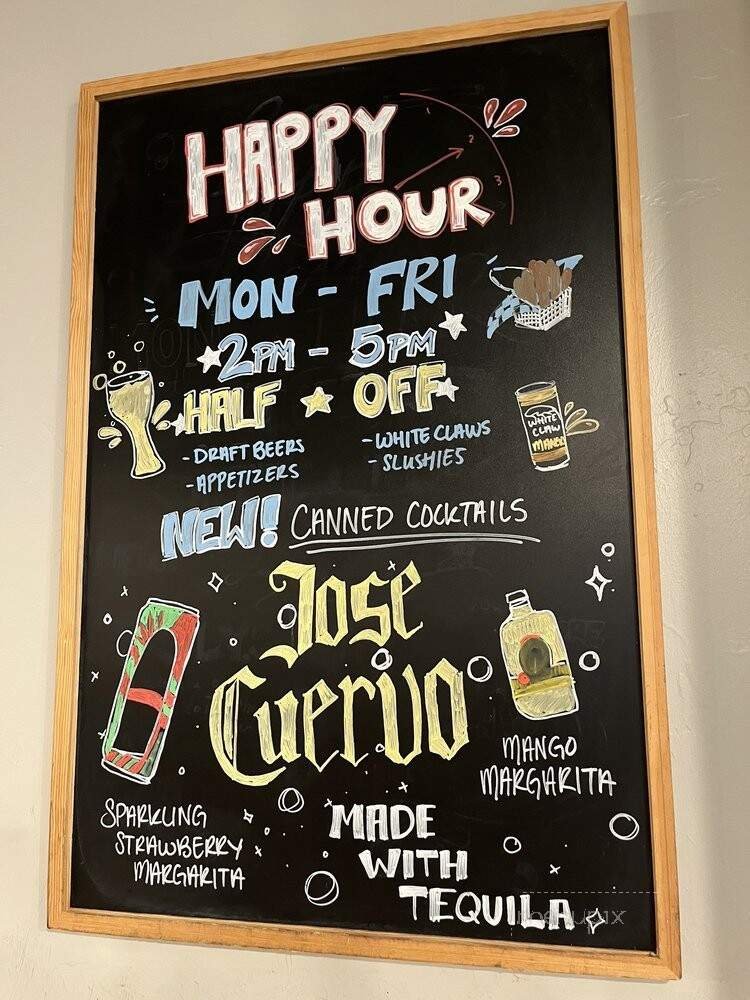 HAPPY
HOUR
1
2
3
MON - FRI
2PM - 5PM
HALF OFF
- DRAFT BEERS
- APPETIZERS
- WHITE CLAWS
- SLUSHIES
WHITE
CLAW
MANGO
NEW! CANNED COCKTAILS
Jose
Cuervo
MANGO
MARGARITA
SPARKLING
STRAWBERRY
MARGARITA
MADE
WITH
TEQUILA